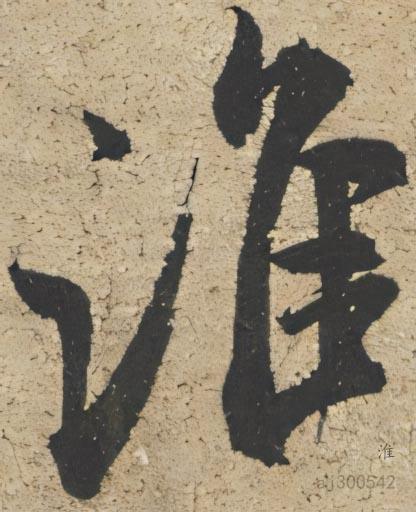 淮
淮
aj300542